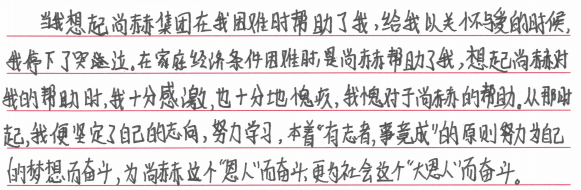 当我想起尚赫集团在我困难时帮助了我，给我以关怀与爱的时候，
我停下了哭泣。在家庭经济条件困难时，是尚赫帮助了我，想起尚赫对
我的帮助时，我十分感激，也十分地愧疚，我愧对于尚赫的帮助。从那时
起，我便坚定了自己的志向，努力学习，本着“有志者，事竟成”的原则努力为自己
的梦想而奋斗，为尚赫这个“恩人”而奋斗，更为社会这个“大恩人”而奋斗。